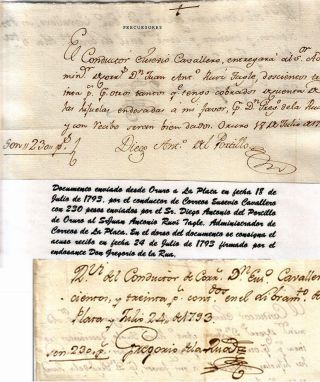 PERCURSORES
El Conductor Eusevio Cavallero, entregará al Sr. Ad
min.r D.n Juan Ant.o Ruvi Tagle, doscientos
p.s otros tantos q.e tengo cobrados
endosadas á mi favor, D.n de la
y con recivo seran bien dados. Oruro 18 de Julio de
Son 230 p.s Diego Ant.o del Portillo
Documento enviado desde Oruro a La Plata en fecha 18 de
Julio de 1793, por el conductor de Correos Eusevio Cavallero
con 230 pesos enviados por el Sr. Diego Antonio del Portillo
de Oruro al Sr.Juan Antonio Ruvi Tagle, Administrador de
Correos de La Plata. En el dorso del documento se consigna el
acuso recibo en fecha 24 de Julio de 1793 firmado por el
endosante Don Gregorio de la Rua.
del Conductor de Corr.s D.n Eus.o Cavallero
cientos, y treinta p.s en el Libram.to
Plata y Julio 24, de 1793
son 230 p.s Gregorio de la Rua